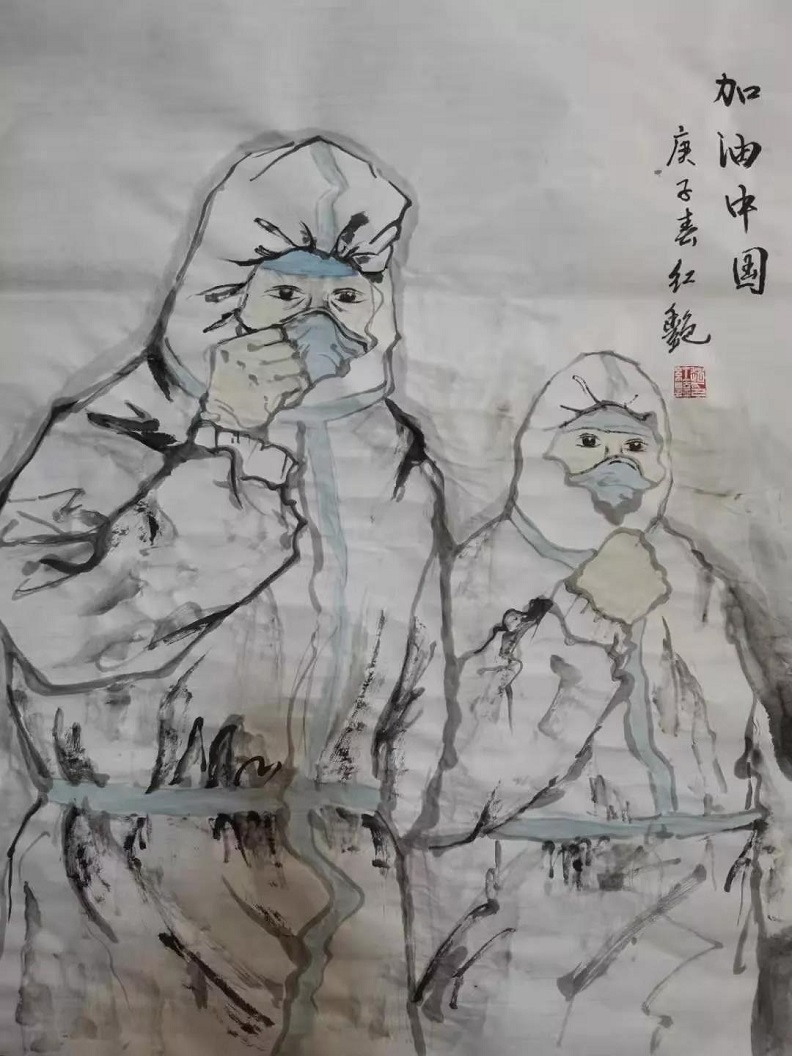 加油中国
庚子春红艳